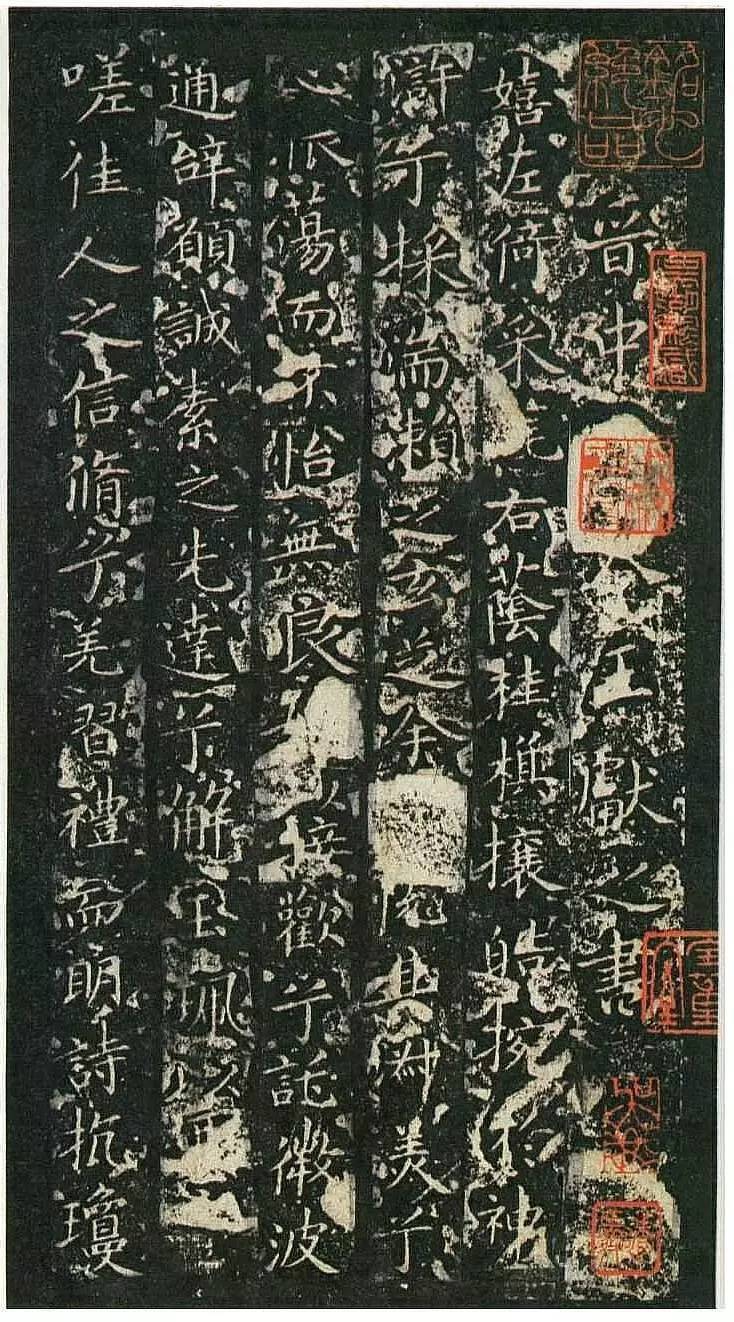 晉中
令王獻之書
嬉左倚采旄右蔭桂旗攘皓捥於神
滸兮採湍瀨之玄芝余
其淑美兮
心振蕩而不怡無良
以接歡兮託微波
通辞願誠素之先達兮解玉珮以要
嗟佳人之信脩兮羌習禮而明詩抗瓊